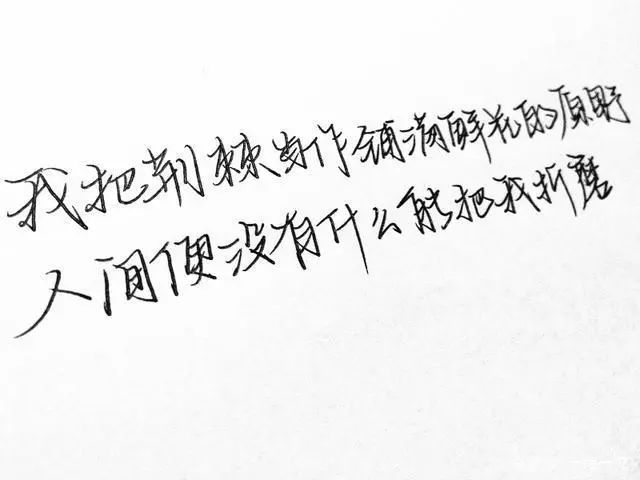 我把荆棘当作铺满鲜花的原野
人间便没有什么能把我折磨